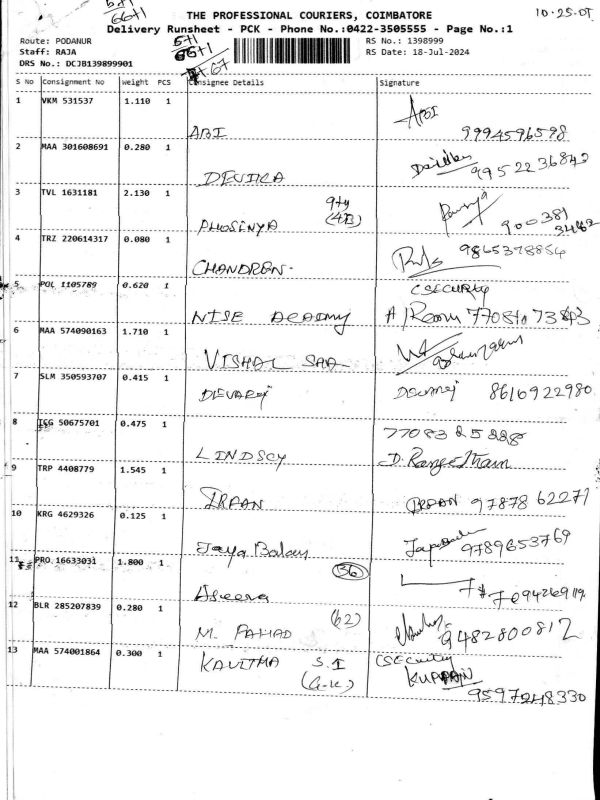 6+1
66+1
THE PROFESSIONAL COURIERS, COIMBATORE
10-25.07
Delivery Runsheet - PCK - Phone No.:0422-3505555 - Page No.:1
Route: PODANUR
6+1
RS No.: 1398999
Staff: RAJA
66+1
RS Date: 18-Jul-2024
DRS No.: DCJB139899901
+67
S No Consignment No Weight PCS Consignee Details Signature
1 VKM 531537 1.110 1
ABI ABI 9994596598
2 MAA 301608691 0.280 1
DEVIKA 9952236842
3 TVL 1631181 2.130 1
PHOSINYA (4B) 900381
4 TRZ 220614317 0.080 1
CHANDREN. 9865378854
5 POL 1105789 0.620 1
CSECURITY
NISE ACADMY A/Room
6 MAA 574090163 1.710 1
VISHAL SAA
7 SLM 350593707 0.415 1
DEVARAJ Devaraj 8616922980
8 ICG 50675701 0.475 1
LINDSCY
9 TRP 4408779 1.545 1
IRPAN IRPAN 97878 62271
10 KRG 4629326 0.125 1
Jaya Balan 9789653769
11 PRO 16633031 1.800 1
(36)
Aseera
12 BLR 285207839 0.280 1
M. FAHAD (62) 9482800812
13 MAA 574001864 0.300 1
KAVITHA S.I (G-K)
CSECurity
KUPPAN
9597248330